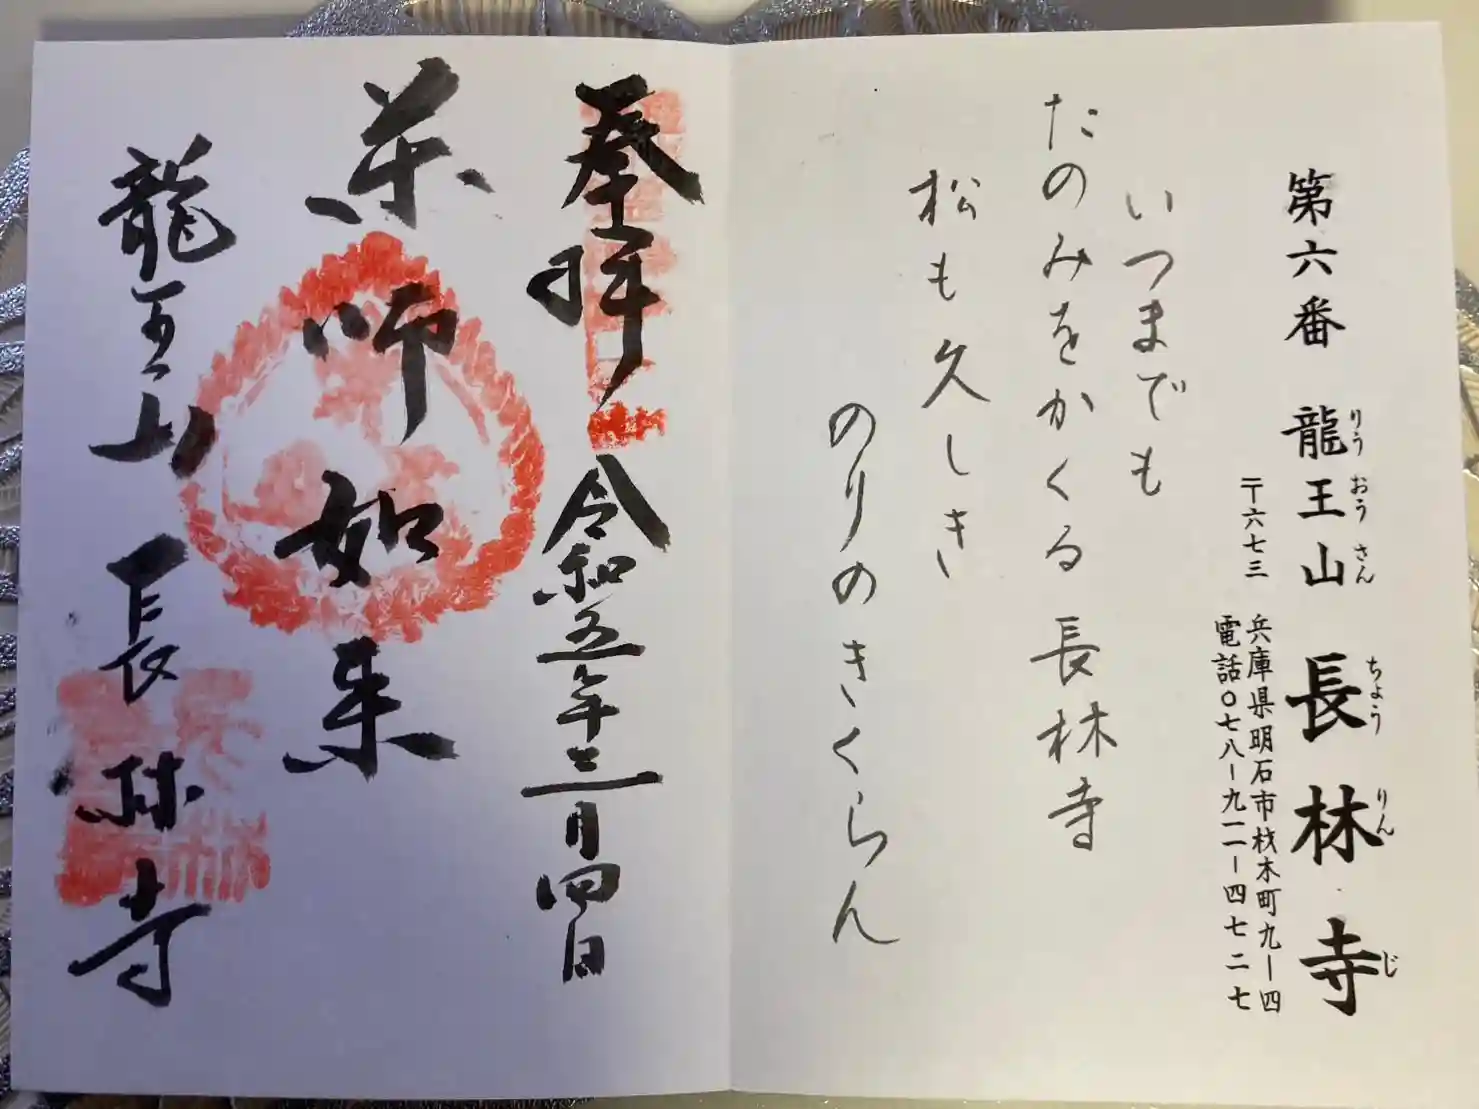 第六番 龍王山 長林寺
りうおうさん ちょうりんじ
〒六七三 兵庫県明石市材木町九ー四
電話〇七八ー九一一ー四七二七
いつまでも
たのみをかくる 長林寺
松も久しき
のりのきくらん
奉拝 令和五年三月四日
薬師如来
龍王山 長林寺